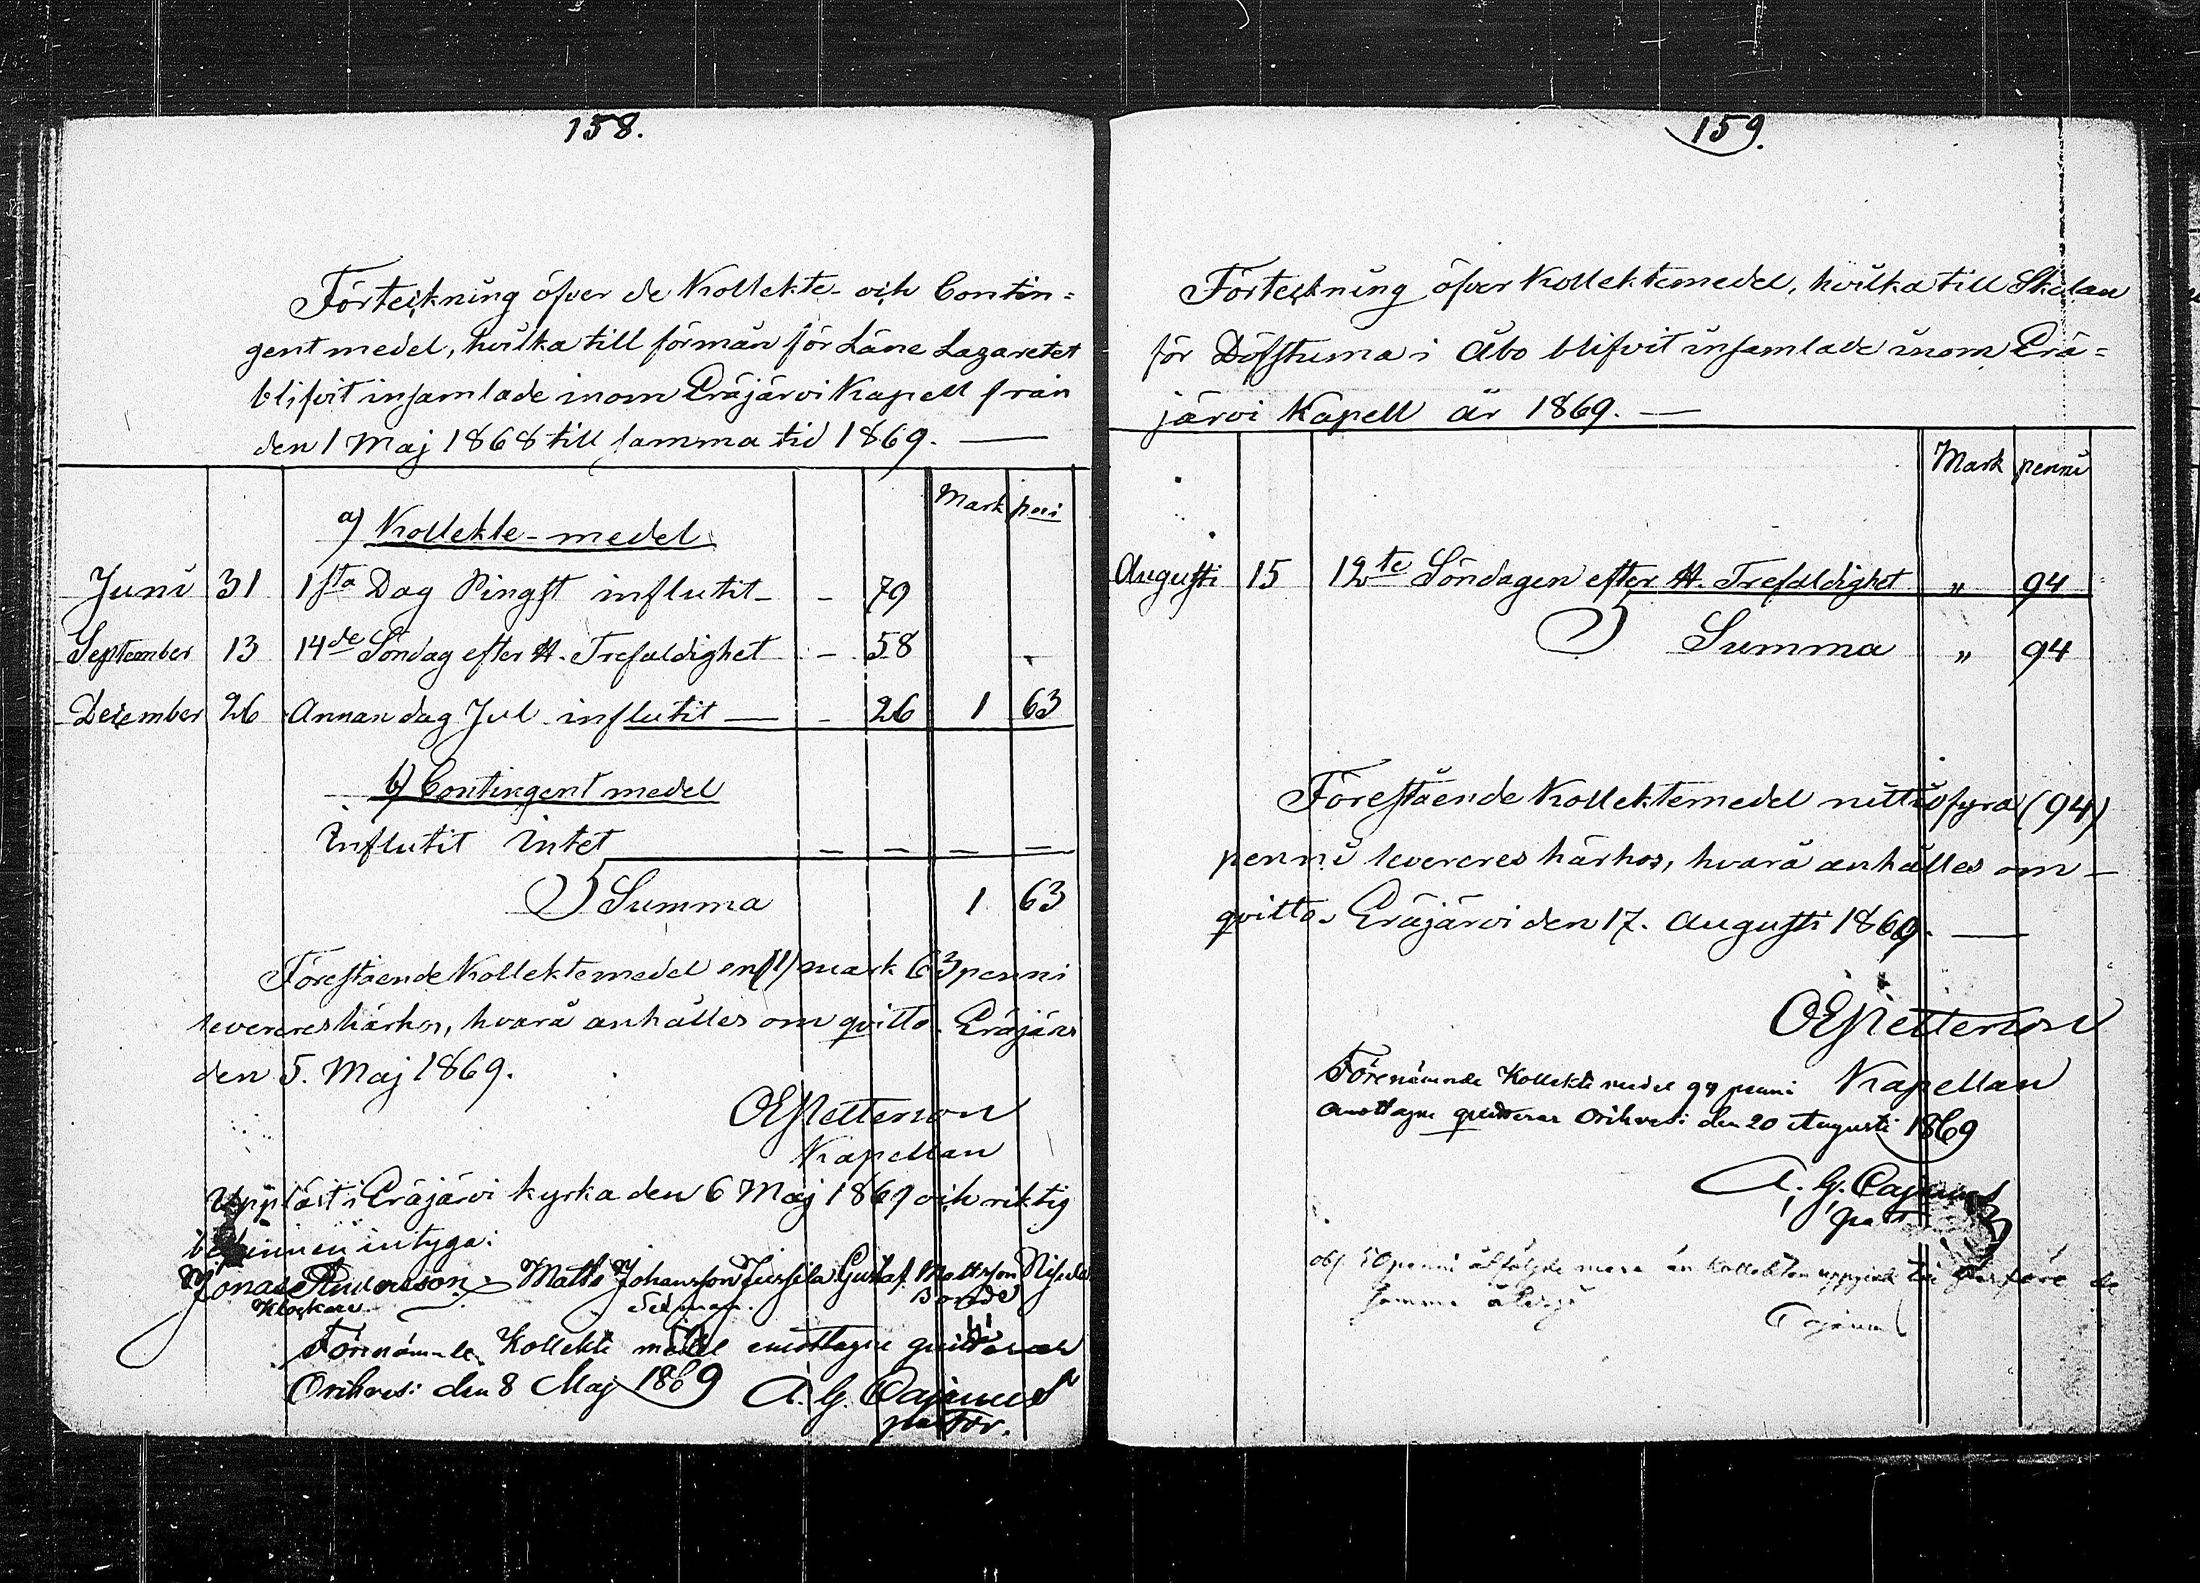 158.
Förteckning öfver de Kollekte- och Contin=
gent medel, hvilka till förmån för Läne Lazarettet
blifvit insamlade inom Eräjärvi Kapell från
den 1 Maj 1868 till samma tid 1869. —
Mark pni
a) Kollekte-medel
Juni 31 1sta Dag Pingst influtit - - 79
September 13 14de Söndag efter H. Trefaldighet - 58
December 26 Annan dag Jul influtit — - 26 1 63
b) Contingent medel
influtit intet — — — —
Summa 1 63
Förestående Kollektemedel en (1) mark 63 penni
levereres härhos, hvarå anhålles om qvitto. Eräjärvi
den 5. Maj 1869.
OEPetterson
Kapellan
Uppläst i Eräjärvi kyrka den 6 Maj 1869 och riktig
befinnen intyga:
Jonas Anderson Matts Johansson Jussila Gustaf Mattsson
Klockare Sexman. Bonde
Förenämnde Kollekte medel emottagne quitteras
Orihvesi den 8 Maj 1869 A. G. Cajanus
pastor.
159.
Förteckning öfver Kollektemedel, hvilka till Skolan
för Döfstuma i Åbo blifvit insamlade inom Erä=
järvi Kapell år 1869. —
Mark penni
Augusti 15 12te Söndagen efter H. Trefaldighet „ 94
Summa „ 94
Förestående Kollektemedel nittiofyra (94)
penni levereres härhos, hvarå anhålles om -
qvitto. Eräjärvi den 17. Augusti 1869. —
OEPetterson
Förenämnde Kollekte medel 94 penni Kapellan
emottagne quitteras Orihvesi den 20 Augusti 1869
A. G. Cajanus
past
obs. 50 penni åtföljde mera än kollekten uppgick till
samma
Cajanus